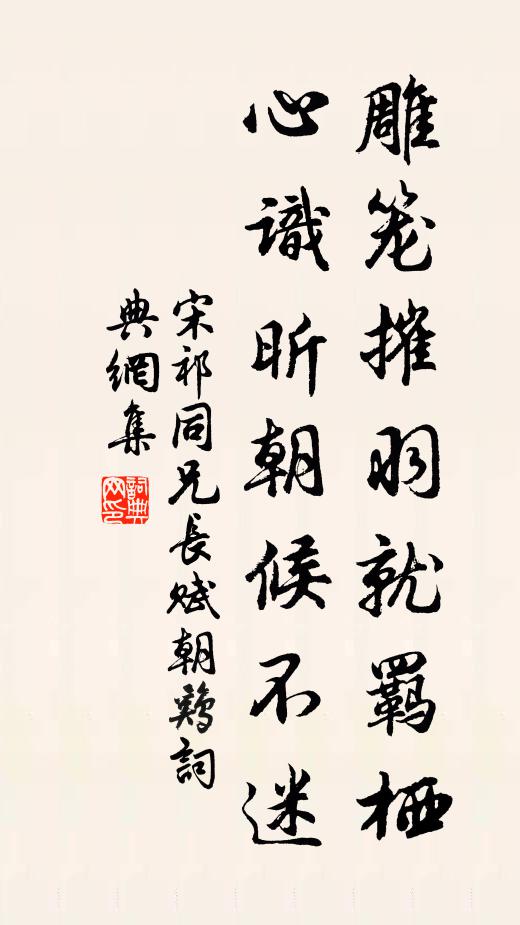 雕笼摧羽就羁栖
心識昕朝候不迷
宋祁同兄長賦朝鷄詞
典網集
詞典网印